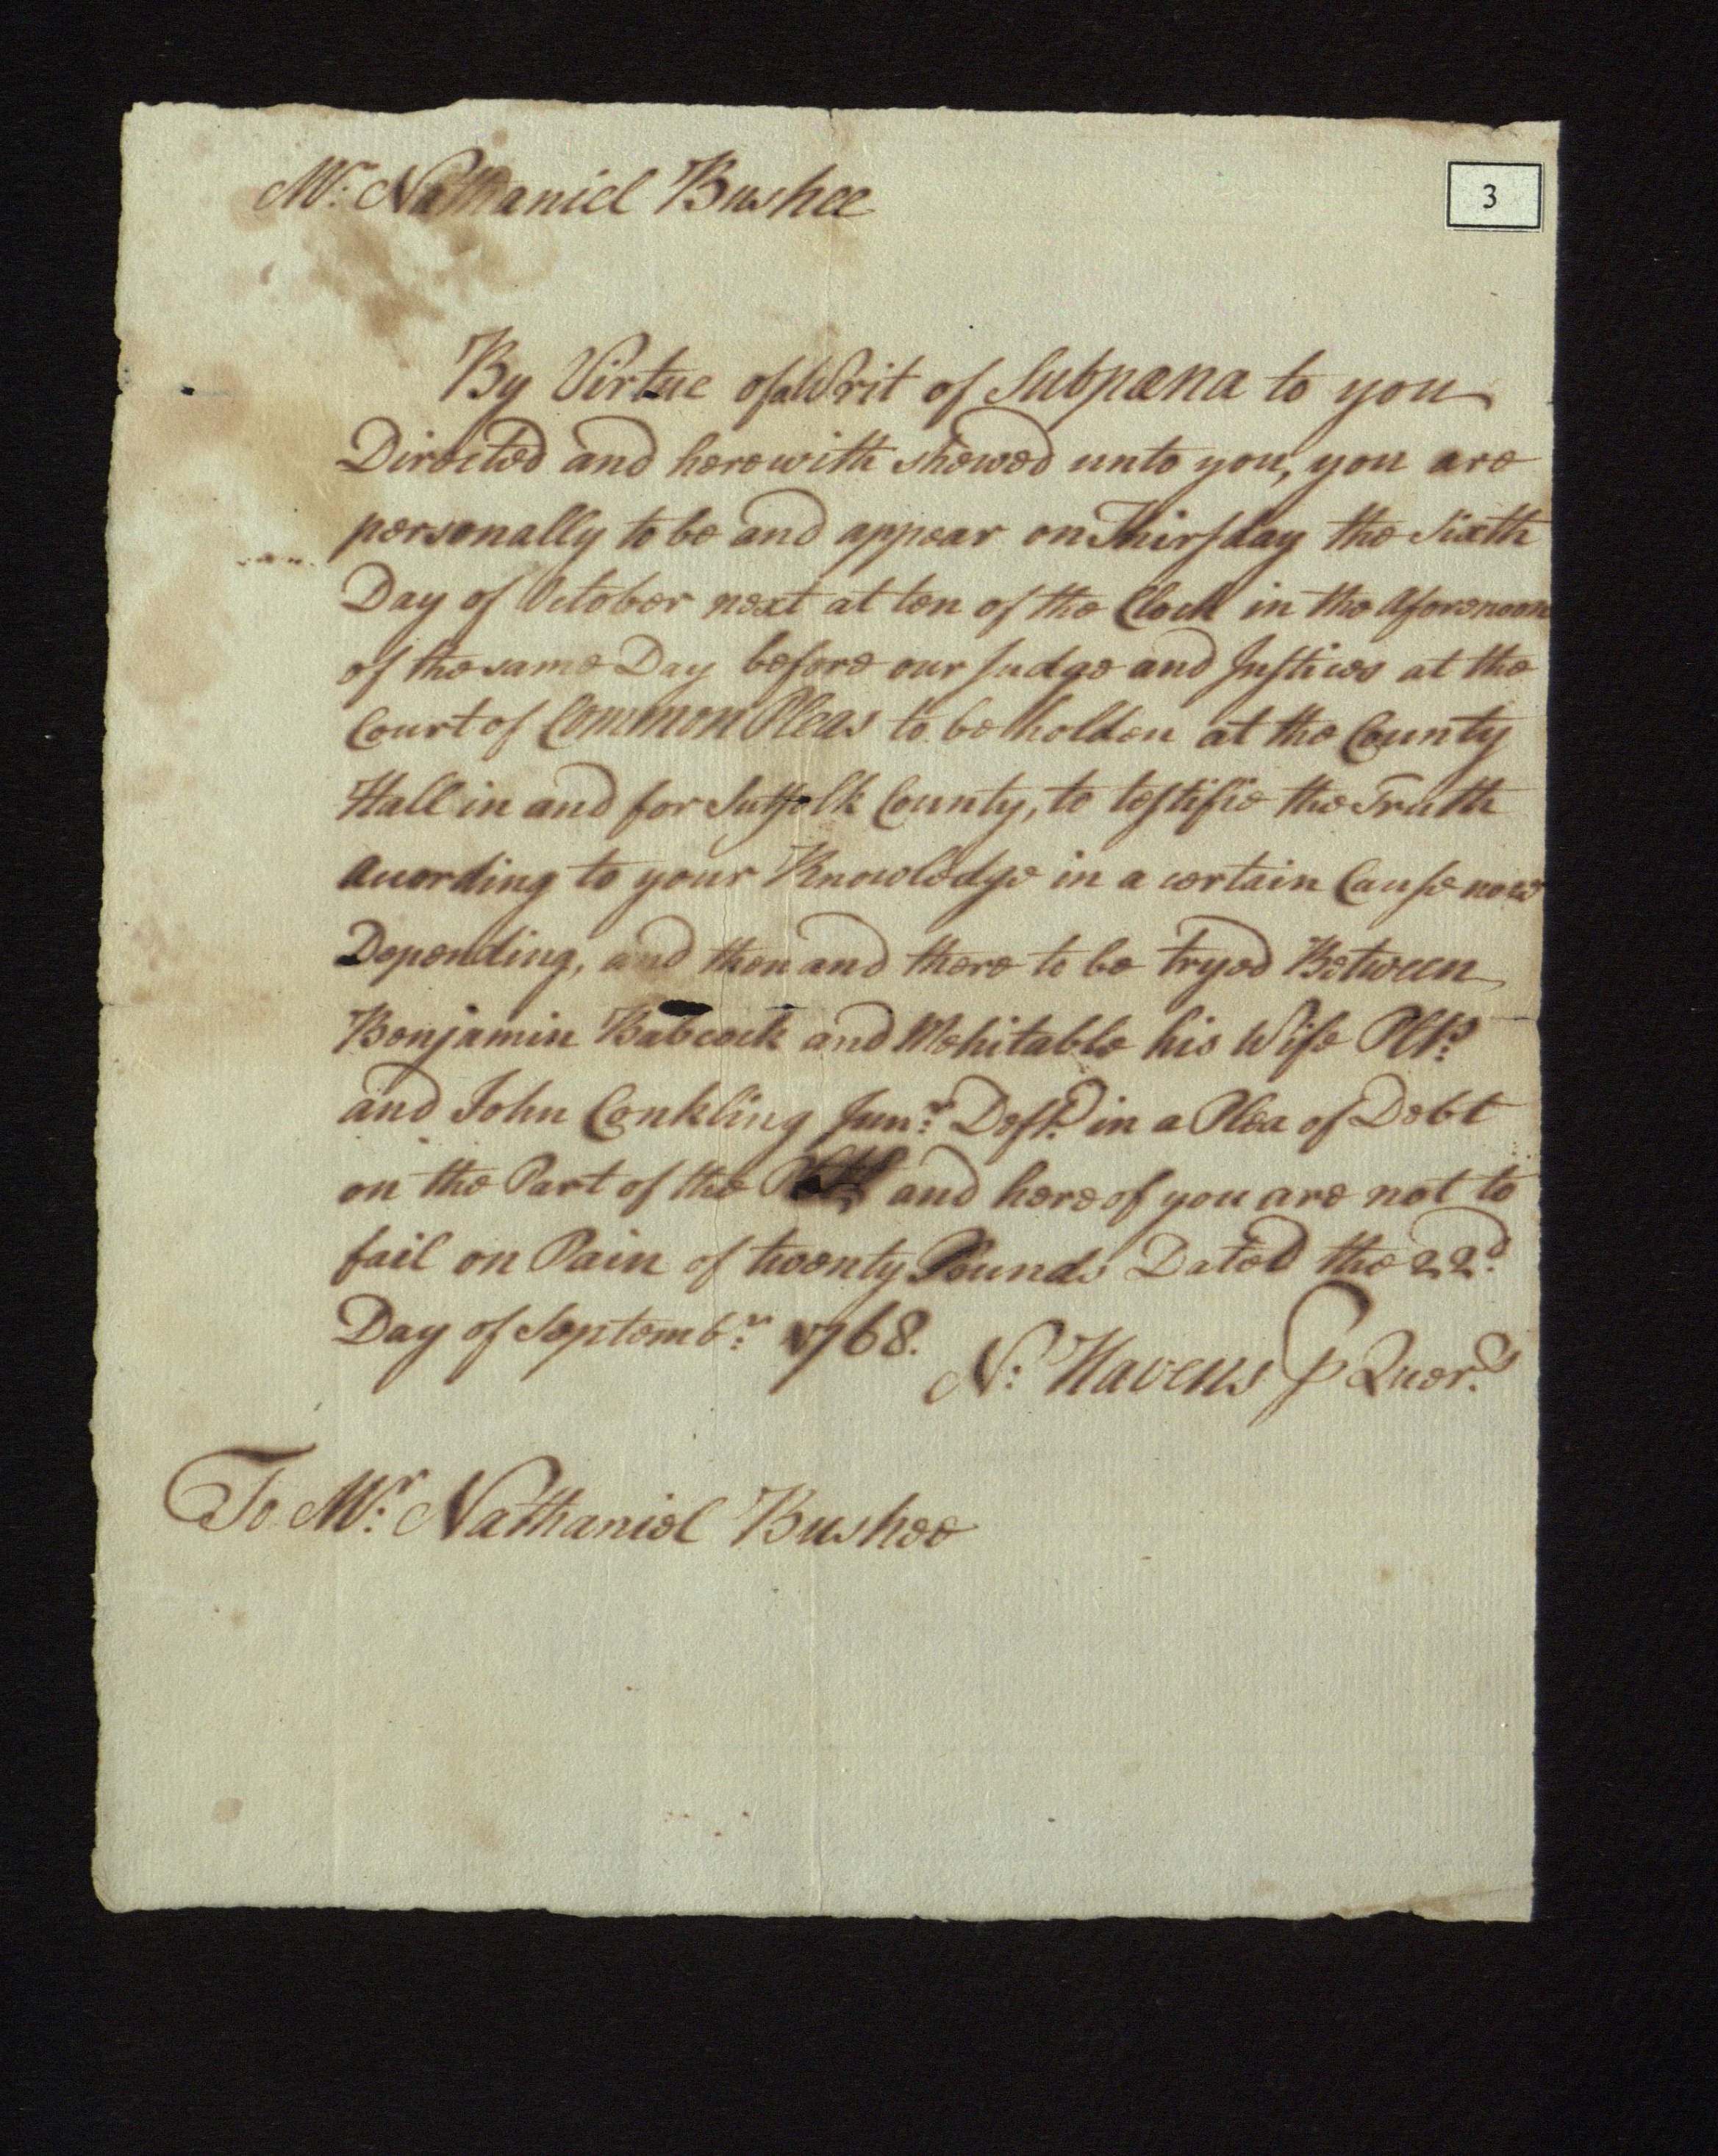 Mr. Nathaniel Bushee
3
By Virtue of a Writ of Subpæna to you
Directed and herewith shewed unto you, you are
personally to be and appear on Thirsday the Sixth
Day of October next at ten of the Clock in the aforenoon
of the same Day before our Judge and Justices at the
Court of Common Pleas to be holden at the County
Hall in and for Suffolk County, to testifie the Truth
according to your Knowledge in a certain Cause now
Depending, and then and there to be tryed Between
Benjamin Babcock and Mehitable his Wife Plts.
and John Conkling Junr. Deft. in a Plea of Debt
on the Part of the and hereof you are not to
fail on Pain of twenty Pounds Dated the 22d.
Day of Septembr. 1768.
N: Havens p Quers.
To Mr. Nathaniel Bushee